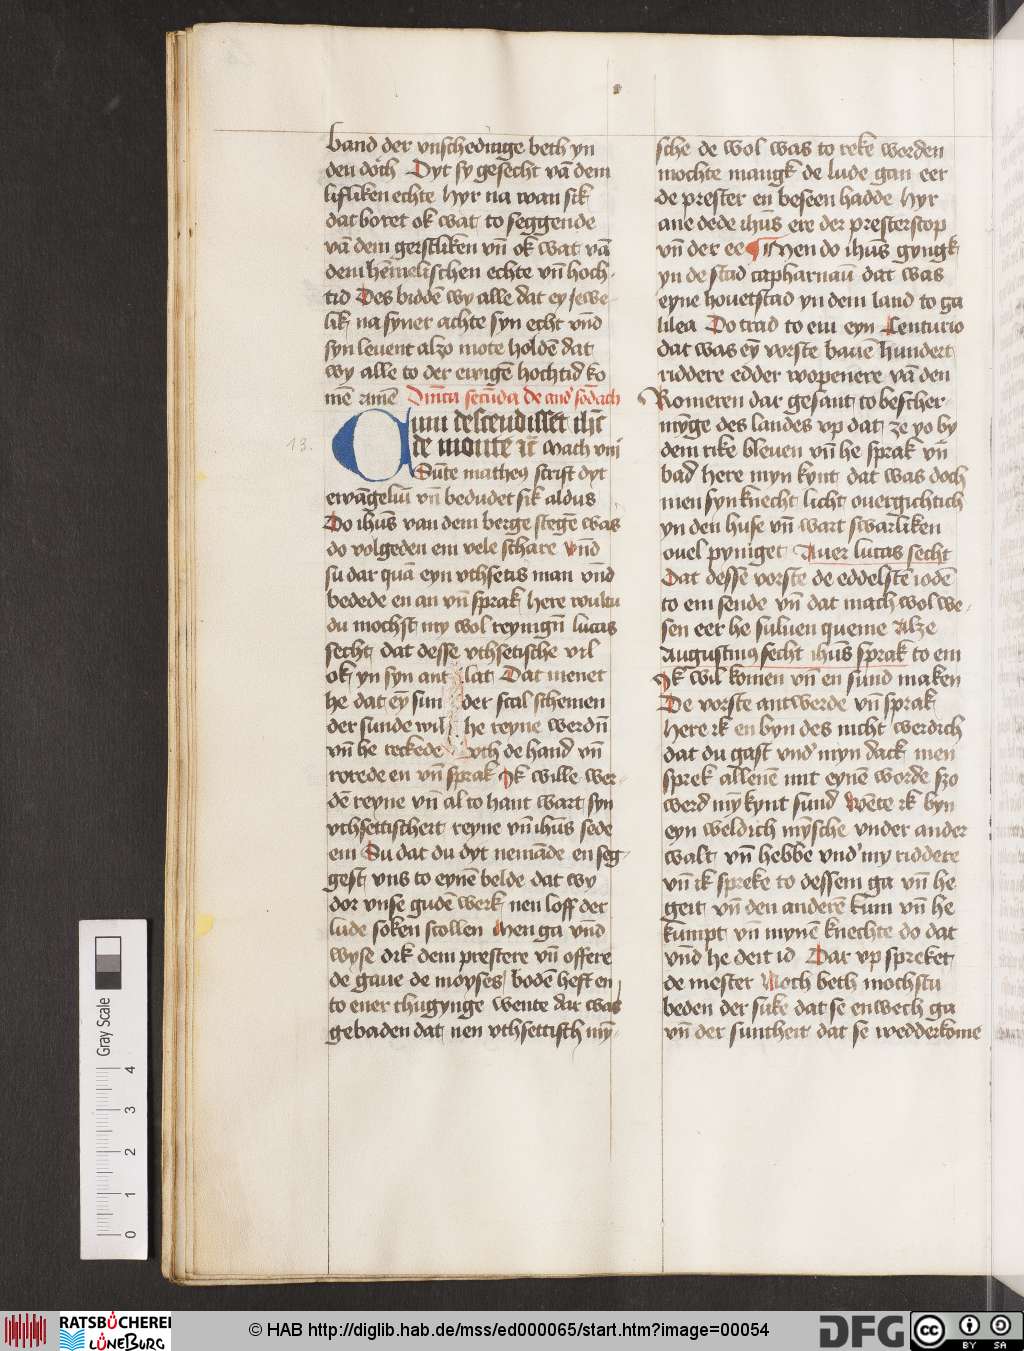 band der vnschedinge beth yn
den doͤth Dyt sy gesecht vā dem
lifliken echte Hyr na wan sik
dat boret ok wat to seggende
vā dem gerstliken vn̄ ok wat vā
dem hēmelischen echte vn̄ hoch
tid Des biddē wy alle dat ey jewe
lik na syner achte syn echt vn̄d
syn leuent alzo mote holdē dat
wy alle to der ewigē hochtid ko
mē amē Dn̄ica secūda de
13.
Cum descendisset ihc̄
de monte rc̄ Mathˀ viij
Sūte matheus scrift dyt
ewāgeliū vn̄ bedudet sik aldus
Do ihūs van dem berge stegē was
do volgeden em vele schare vn̄d
su dar quā eyn vthsetis man vn̄d
bedede en an vn̄ sprak here wultu
du mochst my wol reynigū lucas
secht dat desse vthsetische vil
ok yn syn ant lat Dat menet
he dat eȳ sun der scal schemen
der sunde wil he reyne werdn̄
vn̄ he reckede vth de hand vn̄
rorede en vn̄ sprak Ik wille wer
dē reyne vn̄ al to hant wart syn
vthsettischeit reyne vn̄ ihūs sede
em Su dat du dyt nemāde en seg
gest vns to eynē belde dat wy
dor vnse gudē werk nen loff der
lude soken scollen Men ga vnd
wyse dik dem prestere vn̄ offere
de gaue de moyses bodē heft en
to ener thugynge wente dar was
gebaden dat nen vthsettisch mȳ
sche de wol was to reke worden
mochte mangk de lude gan eer
de prester en beseen hadde Hyr
ane dede ihūs ere der presterscop
vn̄ der ee Men do ihūs gyngk
yn de stad capharnaū dat was
eyne houetstad yn dem land to ga
lilea Do trad to em eyn Centurio
dat was eȳ vorste bauē hundert
riddere edder wopenere vā den
Romeren dar gesant to bescher
mȳge des landes vp dat ze yo by
dem rike bleuen vn̄ he sprak vn̄
bad Here myn kynt dat was doch
men syn knecht licht ouergichtich
yn den huse vn̄ wart swarliken
ouel pyniget Auer lucas secht
Dat desse vorste de eddelste iodē
to em sende vn̄ dat mach wol we
sen eer he suluen queme Alze
Augustinus secht ihūs sprak to em
Ik wil komen vn̄ en sund maken
De vorste antwerde vn̄ sprak
Here ik en byn des nicht werdich
dat du gast vndˀ myn dack men
sprek allenē mit eynē worde szo
werd mȳ kynt sund Wēte ik byn
eyn weldich mȳsche vnder ander
walt vn̄ hebbe vndˀ my riddere
vn̄ ik spreke to dessem ga vn̄ he
geit vn̄ den anderē kum vn̄ he
kumpt vn̄ mynē knechte do dat
vn̄d he deit id Dar vp spreket
de mester Noch beth mochstu
beden der suke dat se enwech ga
vn̄ der suntheit dat se wedderkome
Gray Scale
0 1 2 3 4
RATSBÜCHEREI
LÜNEBURG
© HAB http://diglib.hab.de/mss/ed000065/start.htm?image=00054
DFG
cc
BY SA